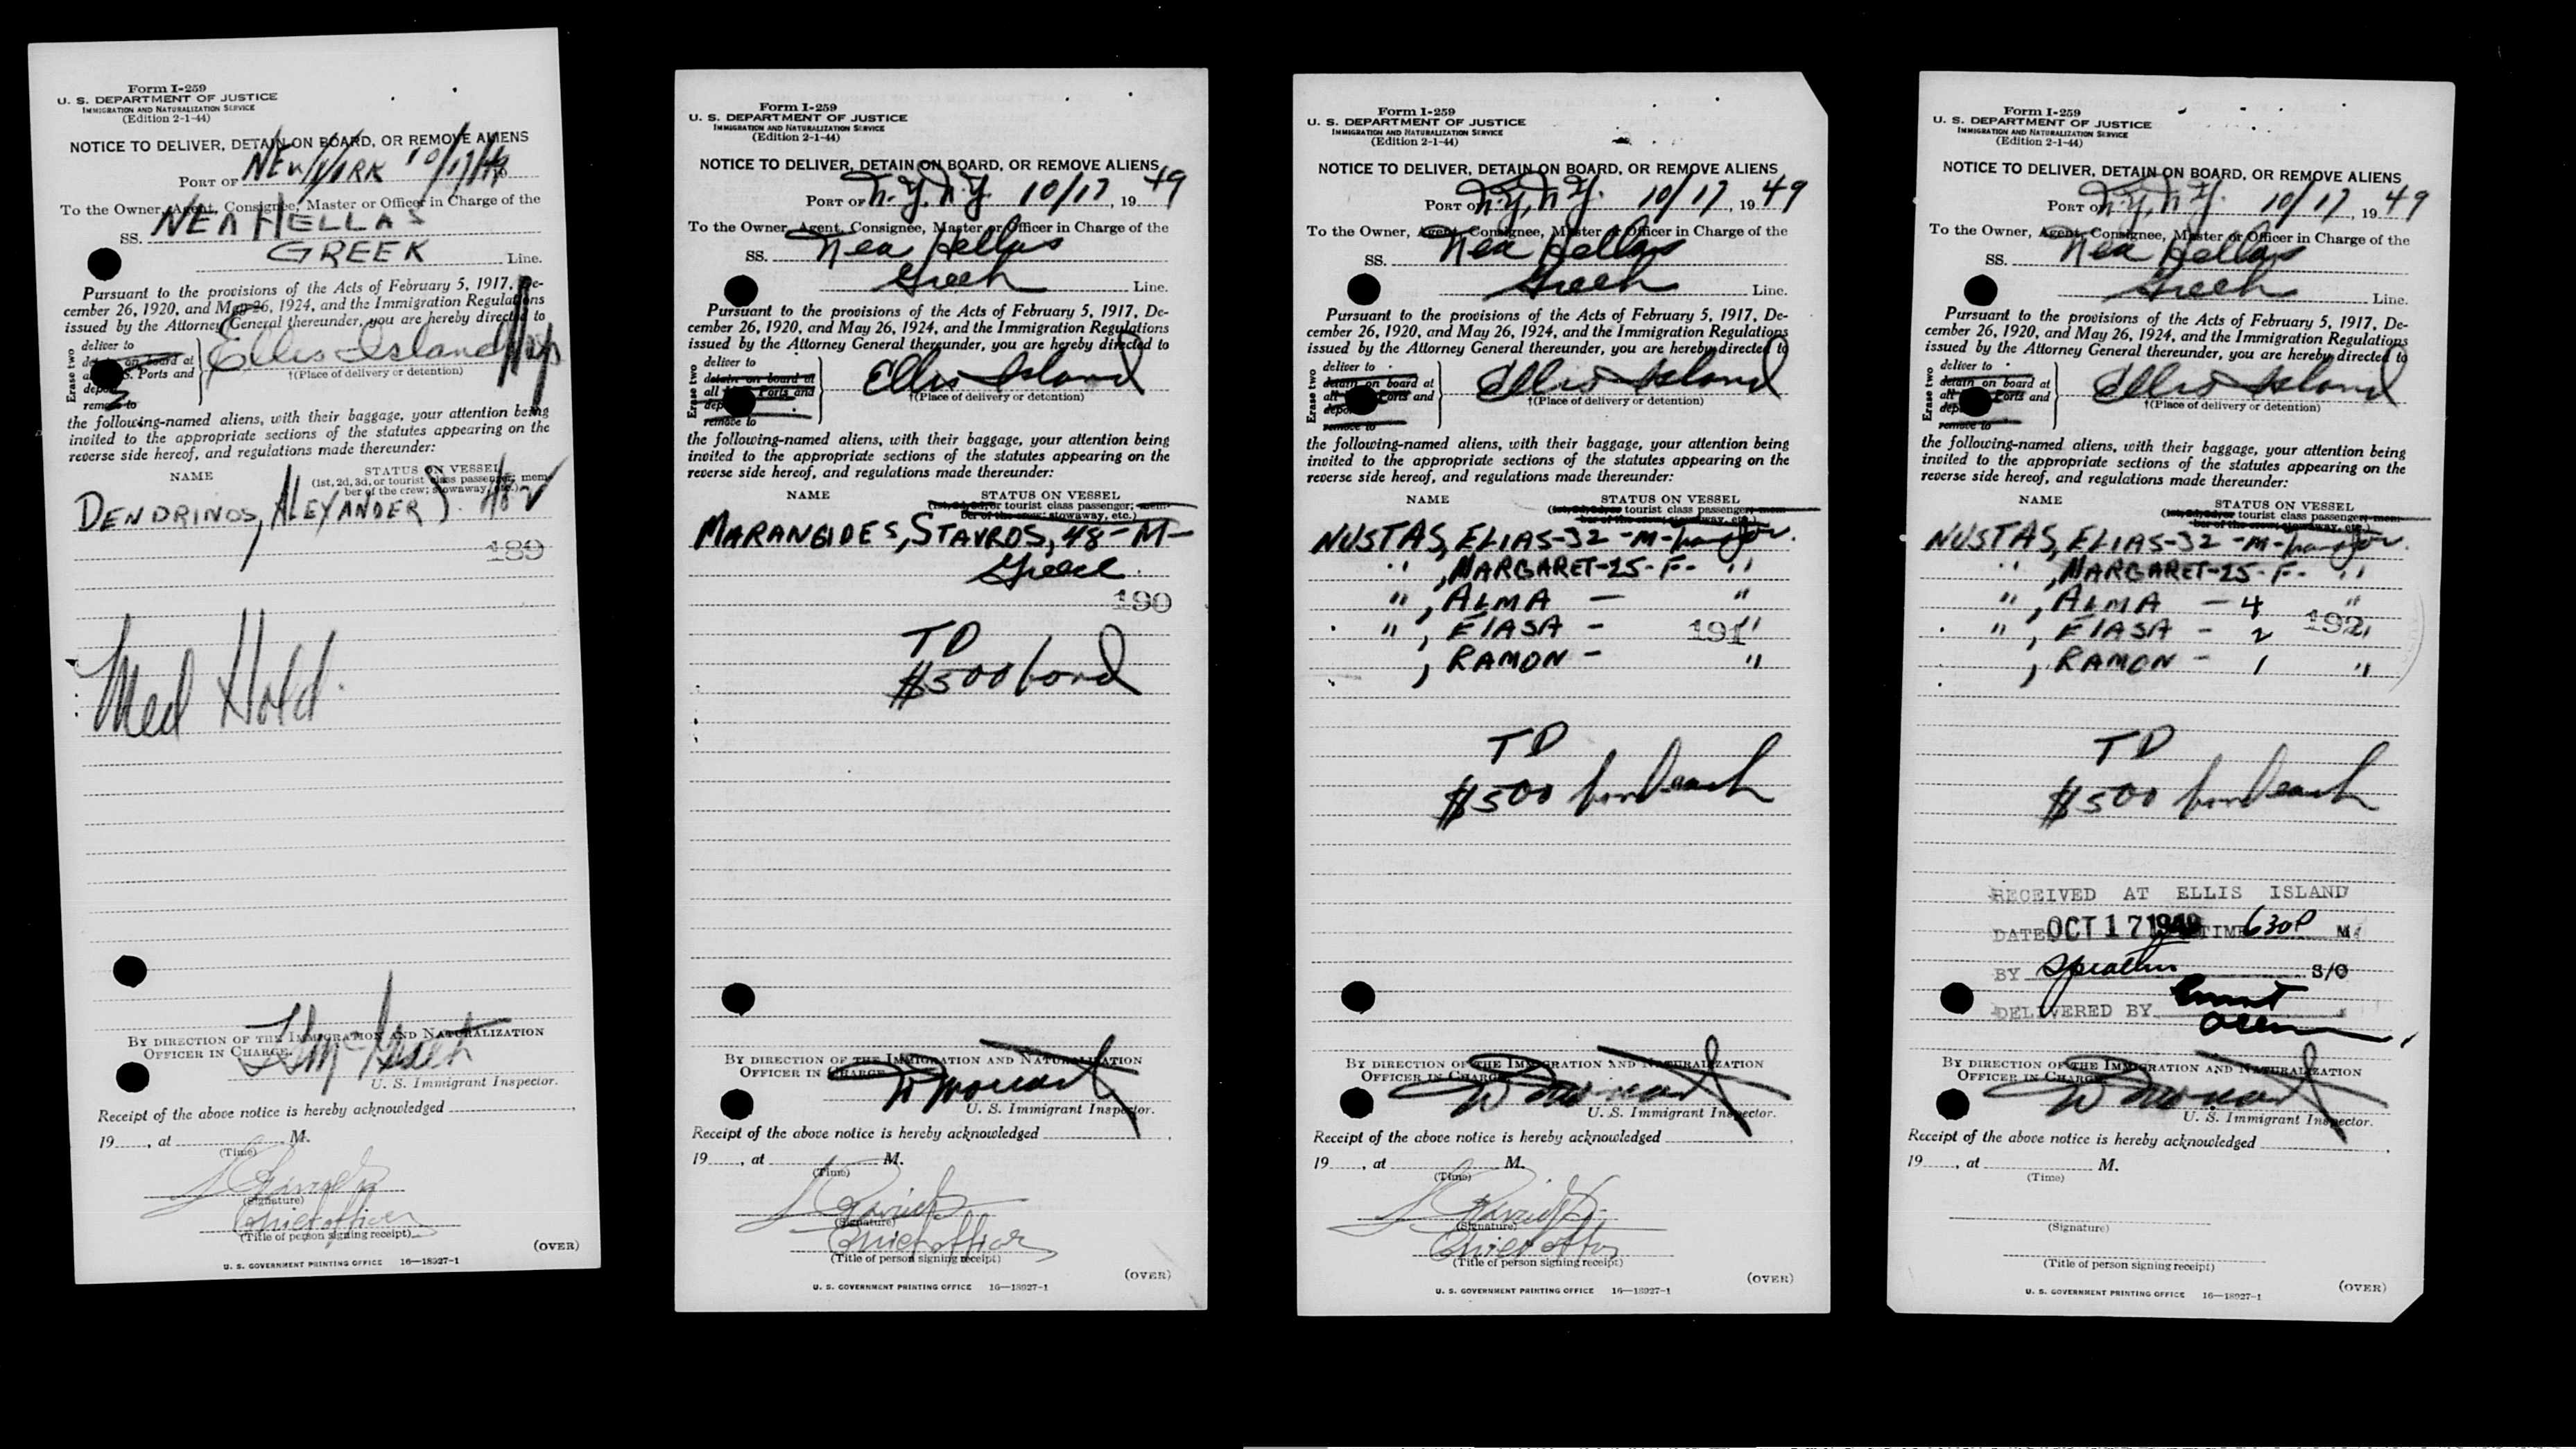 Form I-259
U. S. DEPARTMENT OF JUSTICE
IMMIGRATION AND NATURALIZATION SERVICE
(Edition 2-1-44)
NOTICE TO DELIVER, DETAIN ON BOARD, OR REMOVE ALIENS
PORT OF NEW YORK 10/17/49
To the Owner, Agent, Consignee, Master or Officer in Charge of the
SS. NEA HELLAS
GREEK Line.
Pursuant to the provisions of the Acts of February 5, 1917, De-
cember 26, 1920, and May 26, 1924, and the Immigration Regulations
issued by the Attorney General thereunder, you are hereby directed to
Erase two
deliver to
on board at
S. Ports and
remove to
Ellis Island
†(Place of delivery or detention)
the following-named aliens, with their baggage, your attention being
invited to the appropriate sections of the statutes appearing on the
reverse side hereof, and regulations made thereunder:
NAME STATUS ON VESSEL
(1st, 2d, 3d, or tourist class passenger; mem-
ber of the crew; stowaway, etc.)
DENDRINOS, ALEXANDER
189
Med Hold
BY DIRECTION OF THE IMMIGRATION AND NATURALIZATION
OFFICER IN CHARGE.
U. S. Immigrant Inspector.
Receipt of the above notice is hereby acknowledged
19, at M.
(Time)
(Signature)
Chief officer
(Title of person signing receipt)
(OVER)
U. S. GOVERNMENT PRINTING OFFICE 16—18927-1
Form I-259
U. S. DEPARTMENT OF JUSTICE
IMMIGRATION AND NATURALIZATION SERVICE
(Edition 2-1-44)
NOTICE TO DELIVER, DETAIN ON BOARD, OR REMOVE ALIENS
PORT OF N.Y. N.Y. 10/17, 1949
To the Owner, Agent, Consignee, Master or Officer in Charge of the
SS. Nea Hellas
Greek Line.
Pursuant to the provisions of the Acts of February 5, 1917, De-
cember 26, 1920, and May 26, 1924, and the Immigration Regulations
issued by the Attorney General thereunder, you are hereby directed to
Erase two
deliver to
detain on board at
all Ports and
remove to
Ellis Island
†(Place of delivery or detention)
the following-named aliens, with their baggage, your attention being
invited to the appropriate sections of the statutes appearing on the
reverse side hereof, and regulations made thereunder:
NAME STATUS ON VESSEL
(1st, 2d, 3d, or tourist class passenger; mem-
ber of the crew; stowaway, etc.)
MARANGIDES, STAVROS, 48-M-
Greece
190
TD
$500 bond
BY DIRECTION OF THE IMMIGRATION AND NATURALIZATION
OFFICER IN CHARGE
U. S. Immigrant Inspector.
Receipt of the above notice is hereby acknowledged
19, at M.
(Time)
(Signature)
Chief officer
(Title of person signing receipt)
(OVER)
U. S. GOVERNMENT PRINTING OFFICE 16—18927-1
Form I-259
U. S. DEPARTMENT OF JUSTICE
IMMIGRATION AND NATURALIZATION SERVICE
(Edition 2-1-44)
NOTICE TO DELIVER, DETAIN ON BOARD, OR REMOVE ALIENS
PORT OF N.Y, N.Y. 10/17, 1949
To the Owner, Agent, Consignee, Master or Officer in Charge of the
SS. Nea Hellas
Greek Line.
Pursuant to the provisions of the Acts of February 5, 1917, De-
cember 26, 1920, and May 26, 1924, and the Immigration Regulations
issued by the Attorney General thereunder, you are hereby directed to
Erase two
deliver to
detain on board at
all Ports and
remove to
Ellis Island
†(Place of delivery or detention)
the following-named aliens, with their baggage, your attention being
invited to the appropriate sections of the statutes appearing on the
reverse side hereof, and regulations made thereunder:
NAME STATUS ON VESSEL
(1st, 2d, 3d, or tourist class passenger; mem-
ber of the crew; stowaway, etc.)
NUSTAS, ELIAS-32-M-
" , MARGARET-25-F- "
" , ALMA - "
" , ElASA - 191 "
, RAMON - "
TD
$500 bond each
BY DIRECTION OF THE IMMIGRATION AND NATURALIZATION
OFFICER IN CHARGE
U. S. Immigrant Inspector.
Receipt of the above notice is hereby acknowledged
19, at M.
(Time)
(Signature)
Chief officer
(Title of person signing receipt)
(OVER)
U. S. GOVERNMENT PRINTING OFFICE 16—18927-1
Form I-259
U. S. DEPARTMENT OF JUSTICE
IMMIGRATION AND NATURALIZATION SERVICE
(Edition 2-1-44)
NOTICE TO DELIVER, DETAIN ON BOARD, OR REMOVE ALIENS
PORT OF N.Y, N.Y. 10/17, 1949
To the Owner, Agent, Consignee, Master or Officer in Charge of the
SS. Nea Hellas
Greek Line.
Pursuant to the provisions of the Acts of February 5, 1917, De-
cember 26, 1920, and May 26, 1924, and the Immigration Regulations
issued by the Attorney General thereunder, you are hereby directed to
Erase two
deliver to
detain on board at
all Ports and
remove to
Ellis Island
†(Place of delivery or detention)
the following-named aliens, with their baggage, your attention being
invited to the appropriate sections of the statutes appearing on the
reverse side hereof, and regulations made thereunder:
NAME STATUS ON VESSEL
(1st, 2d, 3d, or tourist class passenger; mem-
ber of the crew; stowaway, etc.)
NUSTAS, ELIAS-32-M-
" , MARGARET-25-F- "
" , ALMA - 4 "
" , ElASA - 2 192 "
, RAMON - 1 "
TD
$500 bond each
RECEIVED AT ELLIS ISLAND
DATE OCT 17 1949 TIME 630P M.
BY S/O
DELIVERED BY
BY DIRECTION OF THE IMMIGRATION AND NATURALIZATION
OFFICER IN CHARGE
U. S. Immigrant Inspector.
Receipt of the above notice is hereby acknowledged
19, at M.
(Time)
(Signature)
(Title of person signing receipt)
(OVER)
U. S. GOVERNMENT PRINTING OFFICE 16—18927-1